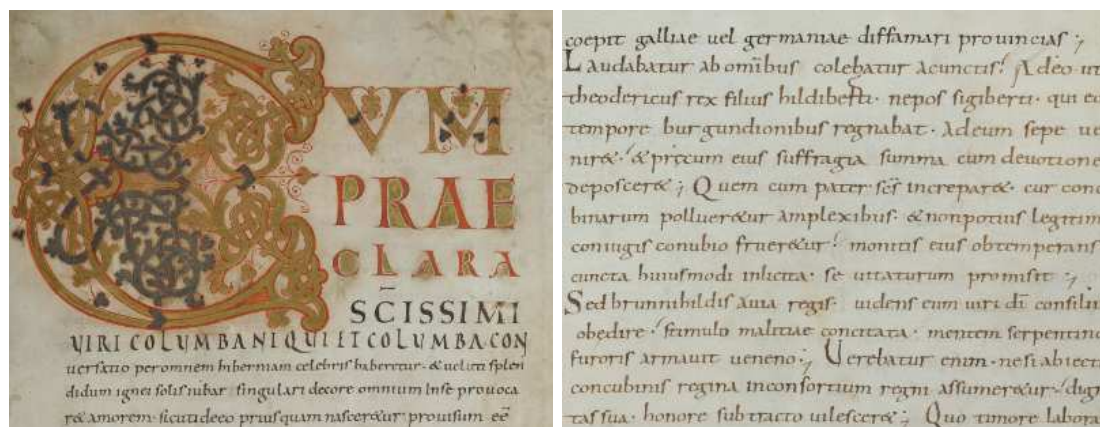 CUM
PRAE
CLARA
SC̄ISSIMI
VIRI COLUMBANI QUI ET COLUMBA CON
uersatio per omnem hiberniam celebris haberetur · & ueluti splen
didum ignei solis iubar · singulari decore omnium in se prouoca
r& amorem · sicut ideo priusquam nascer&ur · prouisum eē
coepit galliae uel germaniae diffamari prouincias ;
Laudabatur ab omībus colebatur a cunctis · Adeo ut
theodericus rex filius hildiberti · nepos sigiberti · qui eo
tempore burgundionibus regnabat · Ad eum sepe ue
nir& · & precum eius suffragia summa cum deuotione
deposcer& ; Quem cum pater sc̄s increpar& · cur conc
binarum polluer&ur amplexibus · & non potius legitim
coniugis conubio fruer&ur · monitis eius obtemperans
cuncta huiusmodi inlicita · se uitaturum promisit ;
Sed brunnihildis auia regis · uidens eum uiri dī consiliis
obedire · stimulo malitiae concitata · mentem serpentino
furoris armauit ueneno ; Uerebatur enim · ne si abiecti
concubinis regina in consortium regni assumer&ur · dign
tas sua · honore subtracto uilescer& ; Quo timore labora